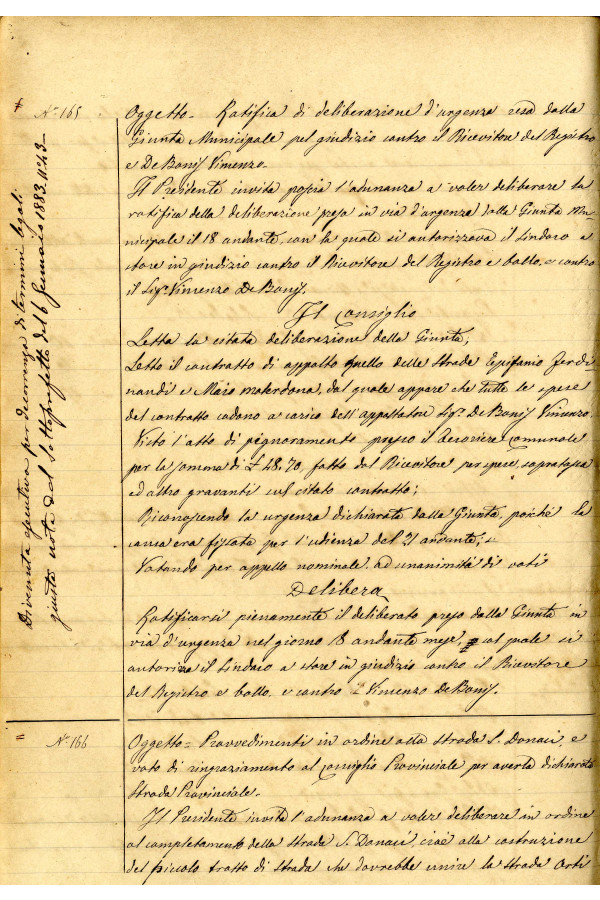 N.° 165
Oggetto - Ratifica di deliberazione d'urgenza resa dalla
Giunta Municipale pel giudizio contro il Ricevitore del Registro
e De Bonis Vincenzo -
Il Presidente invita poscia l'adunanza a voler deliberare la
ratifica della deliberazione presa in via d'urgenza dalla Giunta Mu-
nicipale il 18 andante, con la quale si autorizzava il Sindaco a
stare in giudizio contro il Ricevitore del Registro e bollo, e contro
il Sigr. Vincenzo De Bonis.
Il Consiglio
Letta la citata deliberazione della Giunta;
Letto il contratto di appalto quello delle strade Epifanio Ferdi
nandi e Maio Materdona, dal quale appare che tutte le spese
del contratto cadono a carico dell'appaltatore Sigr. De Bonis Vincenzo.
Visto l'atto di pignoramento presso il Tesoriere Comunale
per la somma di £ 48,70, fatto dal Ricevitore per spese, sopratassa
ed altro gravanti sul citato contratto;
Riconoscendo la urgenza dichiarata dalla Giunta, poichè la
causa era fissata per l'udienza del 21 andante;
Votando per appello nominale, ad unanimità di voti
Delibera
Ratificarsi pienamente il deliberato preso dalla Giunta in
via d'urgenza nel giorno 18 andante mese, col quale si
autorizza il Sindaco a stare in giudizio contro il Ricevitore
del Registro e bollo, e contro Vincenzo De Bonis.
Divenuta esecutiva per decorrenza di termini legali
giusta nota del Sottoprefetto del 6 Gennaio 1883, N. 43 -
N.° 166
Oggetto = Provvedimenti in ordine alla strada S. Donaci, e
voto di ringraziamento al Consiglio Provinciale per averla dichiarata
strada Provinciale.
Il Presidente invita l'adunanza a voler deliberare in ordine
al completamento della strada S. Donaci, cioè alla costruzione
del piccolo tratto di strada che dovrebbe unire la strada Orti